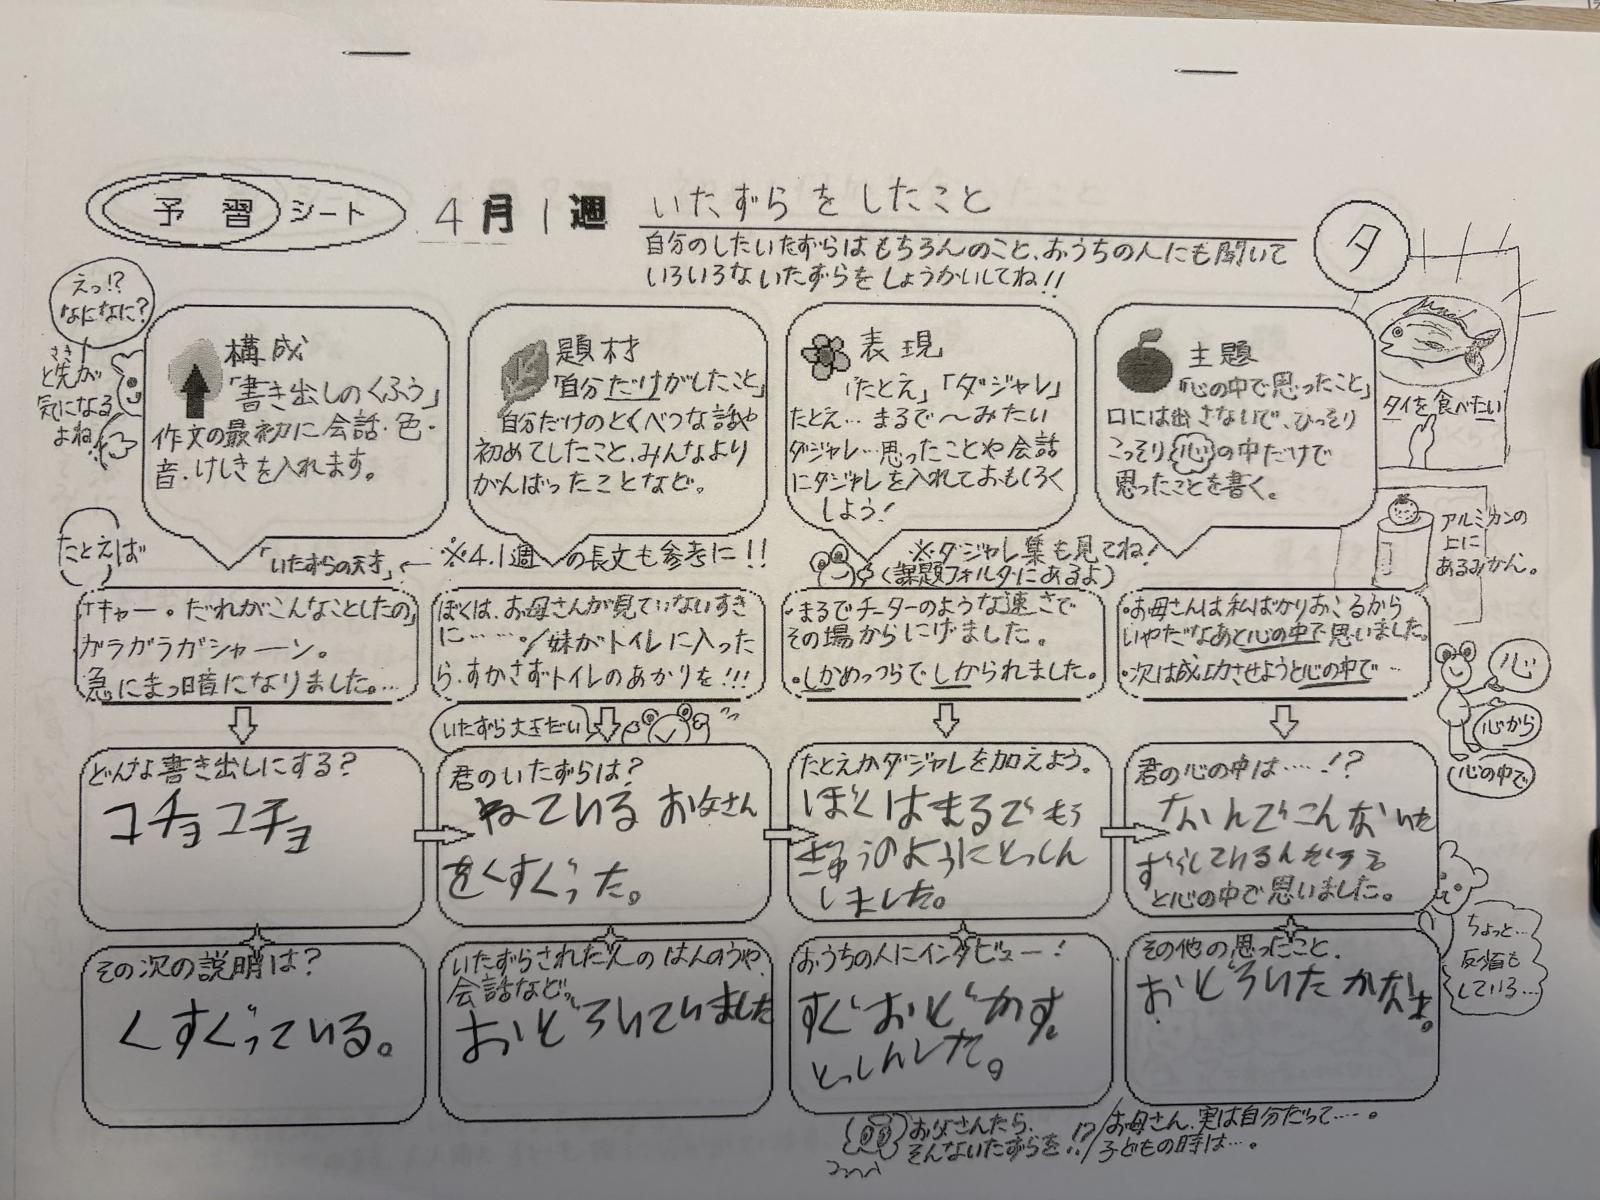 予習シート 4月1週 いたずらをしたこと
自分のしたいたずらはもちろんのこと、おうちの人にも聞いて
いろいろないたずらをしょうかいしてね!!
タ
えっ!?
なになに?
さき
と先が
気になる
よね
構成
「書き出しのくふう」
作文の最初に会話・色・
音・けしきを入れます。
題材
「自分だけがしたこと」
自分だけのとくべつな話や
初めてしたこと、みんなより
がんばったことなど。
表現
「たとえ」「ダジャレ」
たとえ…まるで〜みたい
ダジャレ…思ったことや会話
にダジャレを入れておもしろく
しよう!
主題
「心の中で思ったこと」
口には出さないで、ひっそり
こっそり心の中だけで
思ったことを書く。
タイを食べたい
アルミカンの
上に
あるみかん。
たとえば
「いたずらの天才」←※4.1週の長文も参考に!!
※ダジャレ集も見てね!
(課題フォルダにあるよ)
「キャー。だれがこんなことしたの」
ガラガラガシャーン。
急にまっ暗になりました。…
ぼくは、お母さんが見ていないすき
に……。/妹がトイレに入った
ら、すかさずトイレのあかりを!!!
・まるでチーターのような速さで
その場からにげました。
・しかめっつらでしかられました。
・お母さんは私ばかりおこるから
いやだなあと心の中で思いました。
・次は成功させようと心の中で…
心
心から
心の中で
いたずら大王だい
どんな書き出しにする?
コチョコチョ
君のいたずらは?
ねているお父さん
をくすぐった。
たとえかダジャレを加えよう。
ぼくはまるでもう
ぎゅうのようにとっしん
しました。
君の心の中は……!?
なんでこんないた
と心の中で思いました。
その次の説明は?
くすぐっている。
いたずらされた人のはんのうや、
会話など。
おどろいていました
おうちの人にインタビュー!
すぐおどかす。
とっしんした。
その他の思ったこと、
おどろいたかなあ。
ちょっと…
反省も
している…
お父さんたら、
そんないたずらを!?
お母さん、実は自分だって……。
子どもの時は…。